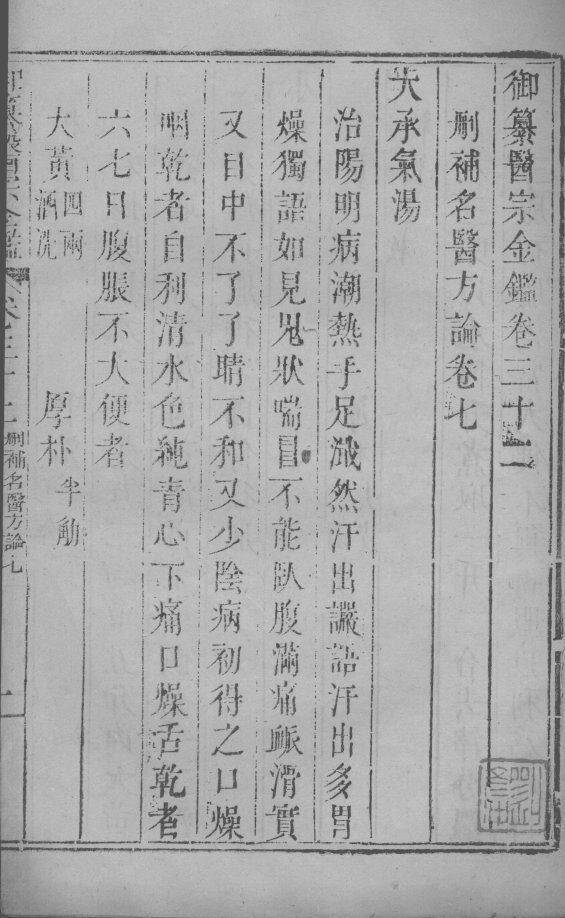 御纂醫宗金鑑卷三十二
刪補名醫方論卷七
大承氣湯
治陽明病潮熱手足濈然汗出讝語汗出多胃
燥獨語如見鬼狀喘冒不能臥腹滿痛脈滑實
又目中不了了睛不和又少陰病初得之口燥
咽乾者自利清水色純青心下痛口燥舌乾者
六七日腹脹不大便者
大黃四兩酒洗 厚朴半觔
御纂醫宗金鑑 卷三十二 刪補名醫方論七 一